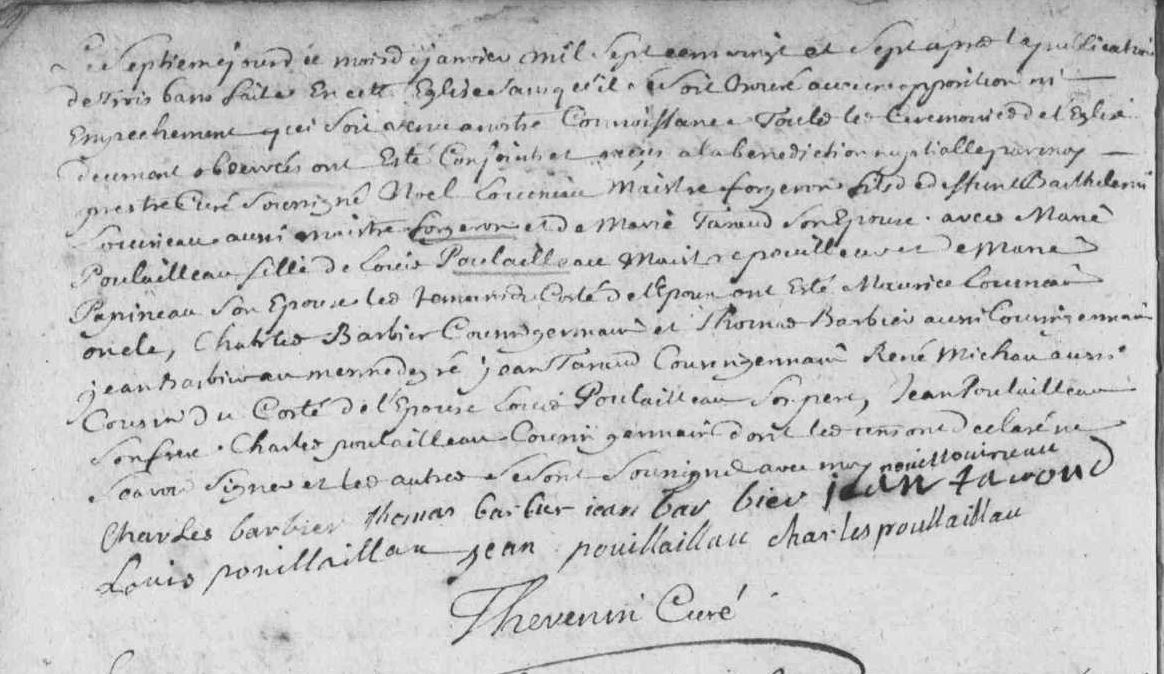 Le Septieme jour de mois de janvier mil Sept cent vingt et Sept apres la publication
de Trois bans faite En cette Eglise sans qu'il se soit trouvé aucune opposition ni
Empechement qui soit venu a nostre Connoissance Toutes les Ceremonies de l'Eglise
deument observées ont Esté Conjoints et receus a la benediction nuptialle par moy
prestre Curé Soussigné Noel Lourneau Maistre forgeron fils de deffunt Barthelemi
Lourneau aussi maistre forgeron et de Marie Taraud Son Epouse avec Marie
Poulailleau fille de Louis Poulailleau Maistre et de Marie
Papineau Son Epouse les temoins du Costé de l'Epoux ont Esté Maurice Lourneau
oncle, Charles Barbier Cousin germain et Thomas Barbier aussi Cousin germain
jean Barbier au mesme degré jean Taraud Cousin germain René Michau aussi
Cousin du Costé de l'Epouse Louis Poulailleau Son pere, Jean Poulailleau
Son frere Charles poulailleau Cousin germain dont les uns ont declaré ne
Scavoir Signer et les autres se sont Soussignes avec moy
Charles barbier thomas barbier jean bar bier jean taroud
Louis pouillaillau jean pouillaillau charles poullaillau
Thevenin Curé